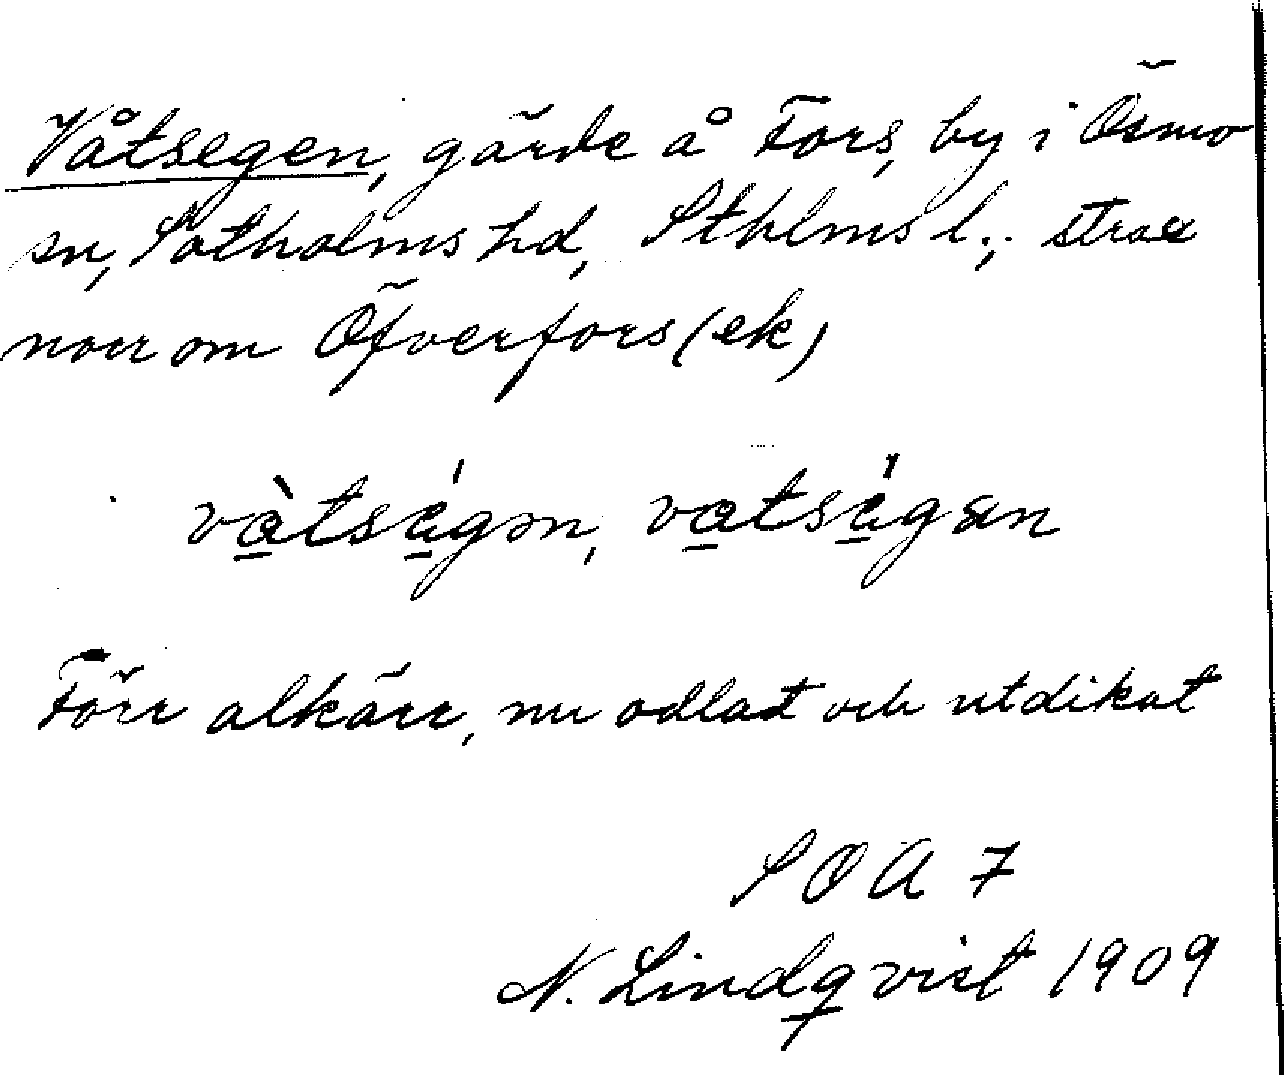 Våtsegen, gärde å Fors, by i Ösmo
sn, Sotholms hd, Sthlms l.; strax
norr om Öfverfors (ek)
vàtségən, vatségæn
Förr alkärr, nu odlat och utdikat
SOA 7
N. Lindqvist 1909